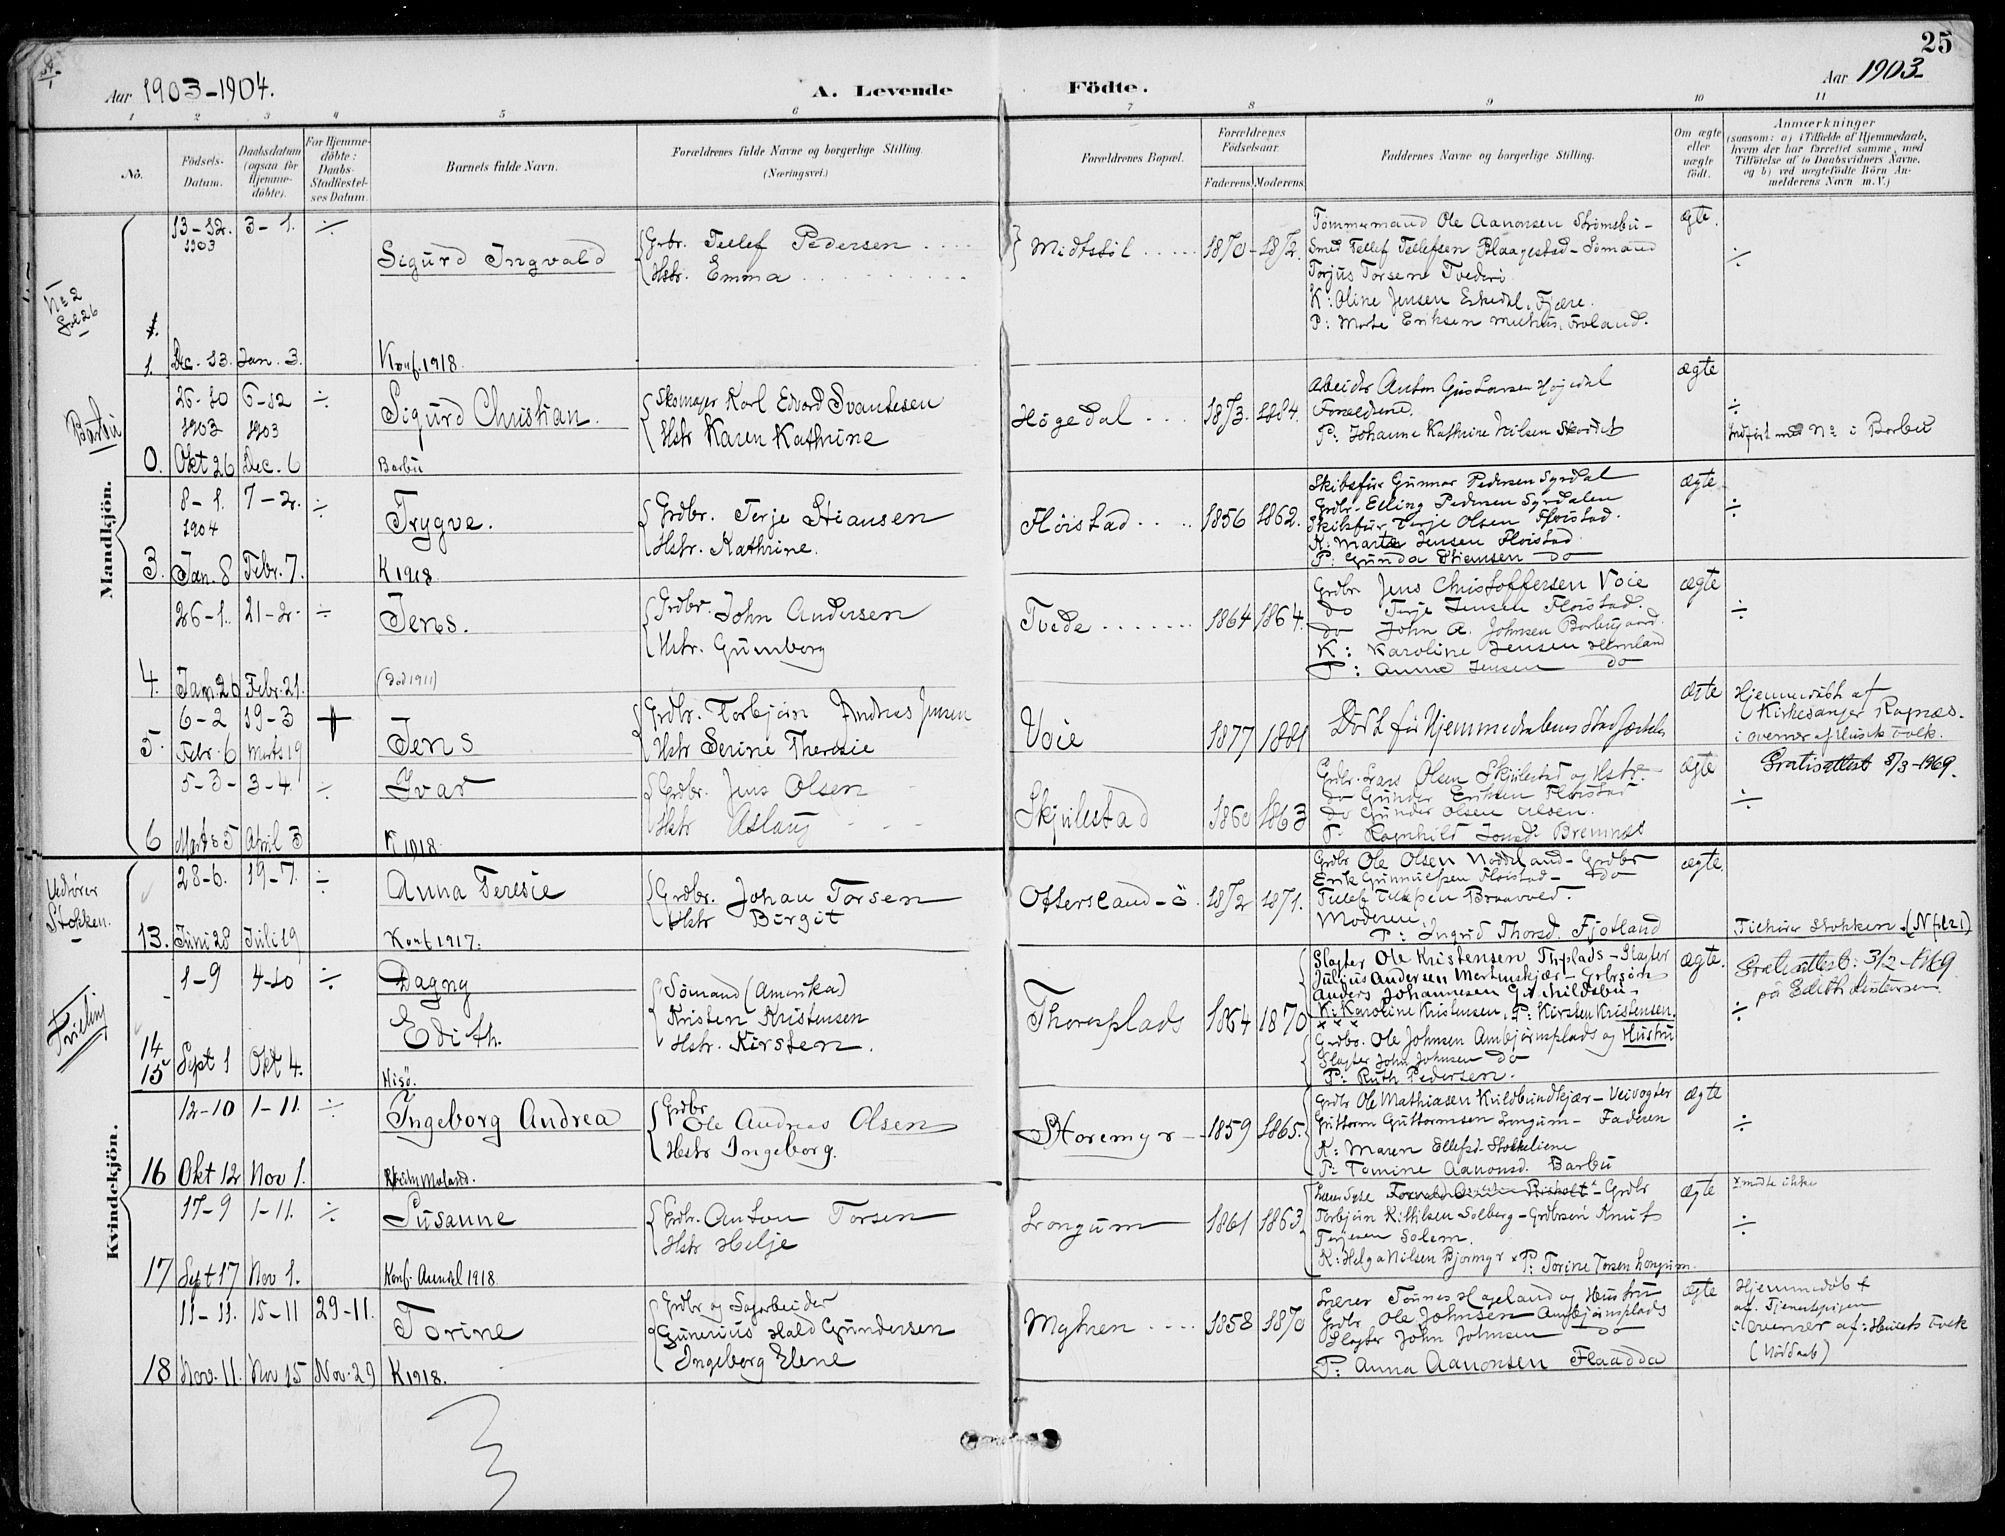 25
Aar 1903-1904.
A. Levende Födte.
Aar 1903-
1 2 3 4 5 6 7 8 9 10 11
Nô.
Födsels-Datum.
Daabsdatum (ogsaa for Hjemme-döbte).
For Hjemme-döbte: Daabs-Stadfæstel-ses Datum.
Barnets fulde Navn.
Forældrenes fulde Navne og borgerlige Stilling.
(Næringsvei.)
Forældrenes Bopæl.
Forældrenes Födselsaar.
Faderens Moderens
Faddernes Navne og borgerlige Stilling.
Om ægte eller uægte födt.
Anmærkninger
(saasom: a) i Tilfælde af Hjemmedaab,
hvem der har forrettet samme, med
Tilföielse af to Daabsvidners Navne,
og b) ved uægtefödte Börn An-
melderens Navn m. V.)
Mandkjön.
No 2 fol 26
1. 13-12. 1903 3-1. ÷
Dec. 13. Jan. 3.
Sigurd Ingvald
Konf. 1918.
Grbr. Tellef Pedersen
Hstr. Emma
Midtböl 1870-1872.
Tömmermand Ole Aanonsen Strömsbu-
Smed Tellef Tellefsen Blaagestad-Sömand
Torjus Torsen Tvedere
K: Oline Jensen Eskedal, Fjære.
P: Marte Eriksen Froland.
ægte. ÷
Barbu
0. 26-10 1903 6-12 1903 ÷
Okt 26 Dec. 6
Sigurd Christian.
Barbu
Skomager Karl Edvard Svantesen
Hstr Karen Kathrine
Högedal 1873. 1884.
Arbeider Anton Gustavsen Höjedal
Forældrene.
P: Johanne Kathrine Nilsen
ægte ÷
Indført med No i Barbu
3. 8-1. 1904 7-2. ÷
Jan. 8 Febr. 7.
Trygve.
K 1918.
Grdbr. Terje Stiansen
Hstr. Kathrine.
Flöistad 1856 1862.
Skibsför Gunnar Pedersen Syrdal
Grdbr. Elling Pedersen Syrdalen
Skibsför Terje Olsen Flöistad.
K: Marte Jensen Flöistad
P: Gunda Stiansen do
ægte ÷
4. 26-1. 21-2. ÷
Jan. 26 Febr. 21.
Jens.
(Död 1911)
Grdbr. John Andersen
Hstr. Gunborg
Tvede 1864 1864.
Grdbr Jens Christoffersen Voie
do Terje Jensen Flöistad.
do John A. Johnsen Barbugaard.
K: Karoline Jensen
P: Anne Jensen do
ægte ÷
5. 6-2 19-3 +
Febr. 6 Marts 19
Jens
Grdbr. Torbjörn Andreas Jensen
Hstr Serine Theresie
Voie 1877 1881
Död för Hjemmedaabens Stadfæstelse
ægte
Hjemmedöbt af Kirkesanger Ragnæs.
i overvær af Husets Folk.
6 5-3- 3-4. ÷
Marts 5 April 3
Ivar
K 1918.
Grdbr. Jens Olsen
Hstr Aslaug
Skjulestad 1860 1863
Grdbr. Lars Olsen Skjulestad og Hstr.
do Gunder Eriksen Flöistad
do Gunder Olsen Ulsen.
P. Ragnhild Jonsd. Bremnes
ægte ÷
Gratisattest 5/3-1969.
Kvindekjön.
Vedrører Stokken.
13. 28-6. 19-7. ÷
Juni 28 Juli 19
Anna Teresie
Konf 1917.
Grdbr. Johan Torsen
Hstr Birgit
Ottersland-ö 1872 1871.
Grdbr Ole Olsen Nöddeland- Grdbr
Erik Gunnulfsen Flöistad- do
Tellef Braavold.
Moderen
P: Ingrid Thorsd. Fjotland
ægte.
Tilhører Stokken.
Tvilling
14 15 1-9 4-10 ÷
Sept 1 Okt 4.
Dagny
Edith.
Hisö.
Sömand (Amerika)
Kristen Kristensen
Hstr. Kirsten.
Thorsplads 1864 1870
Slagter Ole Kristensen, Thplads-Slagter
Julius Andersen Mertenskjær- Grbrsön
Anders Johannesen Gunhildsbu
K: Karoline Kristensen, P: Kirsten Kristensen.
x x x
Grdbr. Ole Johnsen Arnbjörnsplads og Hustru
Slagter John Johnsen do
P: Ruth Pedersen.
ægte. ÷
Gratisattest: 3/2-1969
på Edith
16 12-10 1-11. ÷
Okt 12 Nov 1.
Ingeborg Andrea
Grdbr
Ole Andreas Olsen
Hstr Ingeborg.
Storemyr 1859 1865.
Grdbr Ole Mathiasen Kuldbundkjær- Veivogter
Guttorm Guttormsen Longum- Faderen
K: Maren Ellefsd. Stokkeliene
P: Tomine Aanonsd. Barbu
ægte ÷
17 17-9 1-11. ÷
Sept 17 Nov 1.
Susanne
Konf. Arendal 1918
Grdbr. Anton Torsen
Hstr Helje
Longum 1861 1863
Grdbr
Torbjörn Kittilsen Solberg- Grdbrsön Knut
Terjesen Solem.
K: Helga Nilsen Bjormyr x P: Torine Torsen Longum
ægte ÷
x mødte ikke
18 11-11. 15-11 29-11.
Nov. 11. Nov 15 Nov. 29
Torine
K 1918.
Grdbr og Sagarbeider
Gunerius Hald Gundersen
Ingeborg Elene
Myhren 1858 1870
Lærer Tönnes Hageland og Hustru
Grdbr Ole Johnsen Arnbjörnsplads
Slagter John Johnsen do
P: Anna Aanonsen Flaadda
ægte
Hjemmedöbt
af Tjenestepigen
i overvær af: Husets Folk
(Nöddaab)